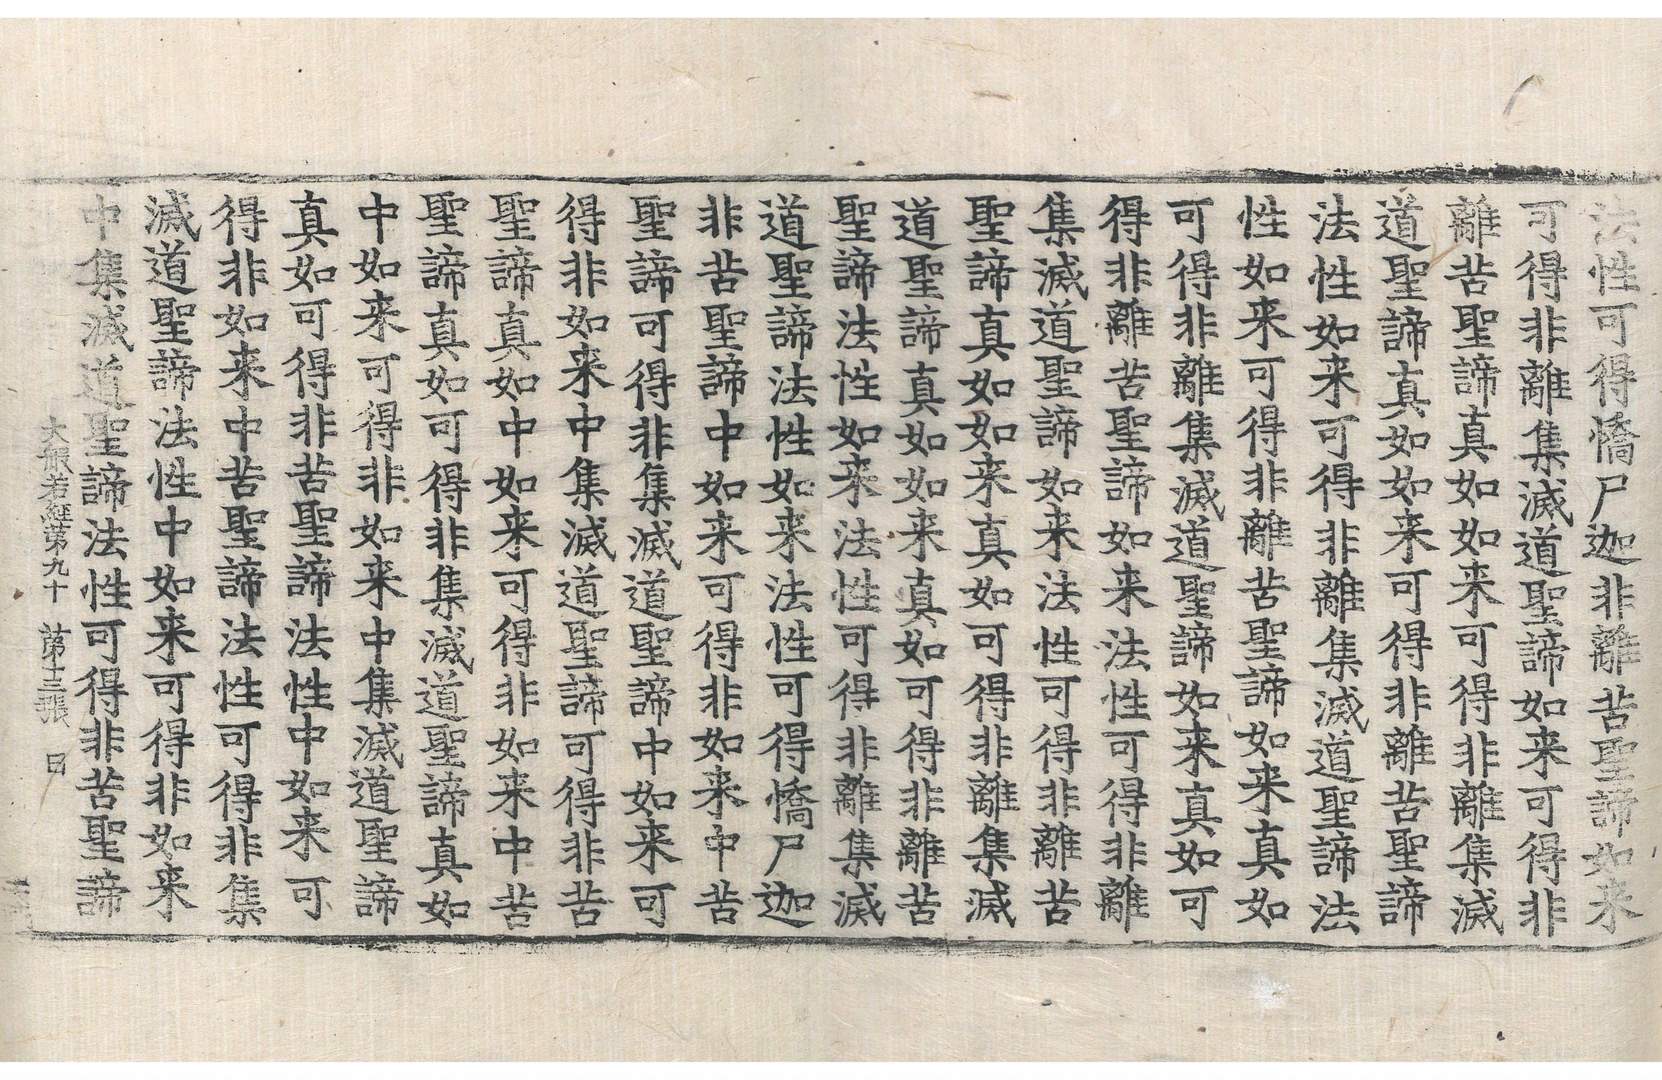 法性可得憍尸迦非離苦聖諦如来
可得非離集滅道聖諦如来可得非
離苦聖諦真如如来可得非離集滅
道聖諦真如如来可得非離苦聖諦
法性如来可得非離集滅道聖諦法
性如来可得非離苦聖諦如来真如
可得非離集滅道聖諦如来真如可
得非離苦聖諦如来法性可得非離
集滅道聖諦如来法性可得非離苦
聖諦真如如来真如可得非離集滅
道聖諦真如如来真如可得非離苦
聖諦法性如来法性可得非離集滅
道聖諦法性如来法性可得憍尸迦
非苦聖諦中如来可得非如来中苦
聖諦可得非集滅道聖諦中如来可
得非如来中集滅道聖諦可得非苦
聖諦真如中如来可得非如来中苦
聖諦真如可得非集滅道聖諦真如
中如来可得非如来中集滅道聖諦
真如可得非苦聖諦法性中如来可
得非如来中苦聖諦法性可得非集
滅道聖諦法性中如来可得非如来
中集滅道聖諦法性可得非苦聖諦
大般若経苐九十 苐十三張 日